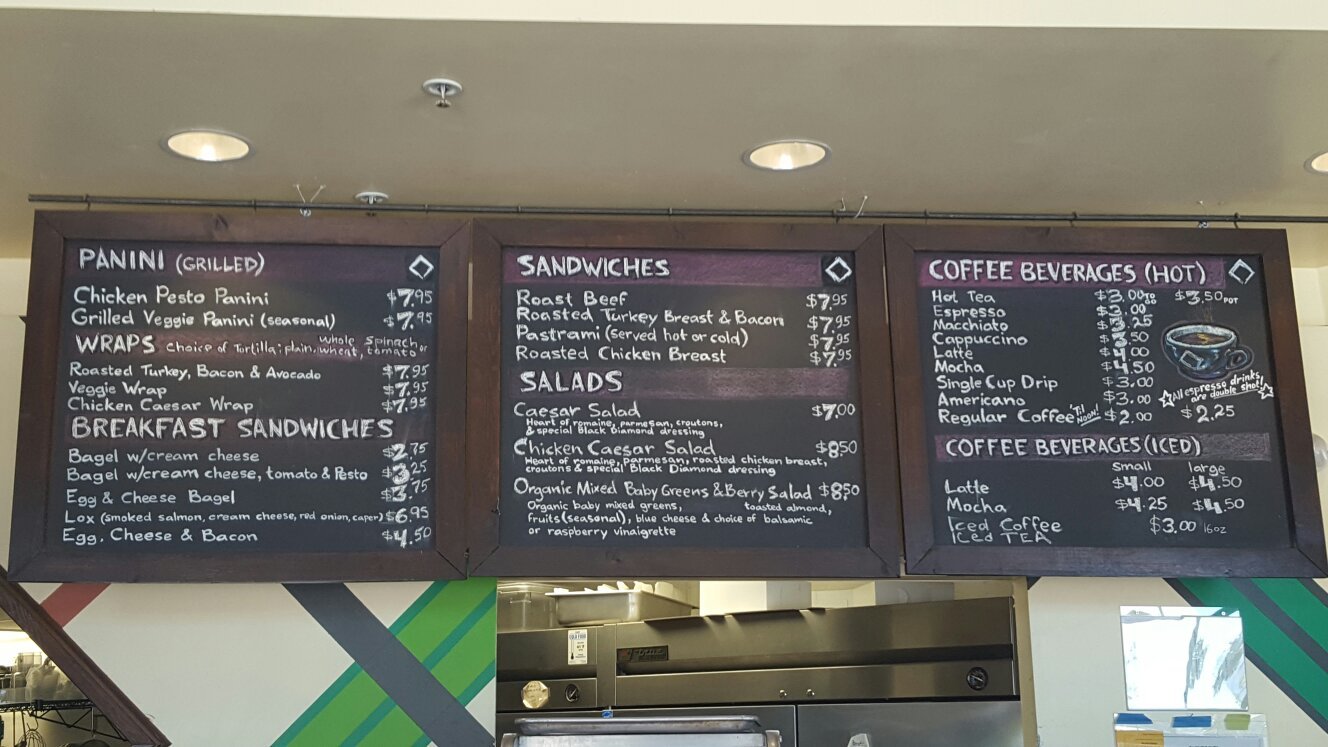 PANINI (GRILLED)
Chicken Pesto Panini $7.95
Grilled Veggie Panini (seasonal) $7.95
WRAPS choice of Tortilla: plain, whole wheat, spinach, tomato or
Roasted Turkey, Bacon & Avocado $7.95
Veggie Wrap $7.95
Chicken Caesar Wrap $7.95
BREAKFAST SANDWICHES
Bagel w/cream cheese $2.75
Bagel w/cream cheese, tomato & Pesto $3.25
Egg & Cheese Bagel $3.75
Lox (smoked salmon, cream cheese, red onion, caper) $6.95
Egg, Cheese & Bacon $4.50
SANDWICHES
Roast Beef $7.95
Roasted Turkey Breast & Bacon $7.95
Pastrami (served hot or cold) $7.95
Roasted Chicken Breast $7.95
SALADS
Caesar Salad $7.00
Heart of romaine, parmesan, croutons,
& special Black Diamond dressing
Chicken Caesar Salad $8.50
Heart of romaine, parmesan, roasted chicken breast,
croutons & special Black Diamond dressing
Organic Mixed Baby Greens & Berry Salad $8.50
Organic baby mixed greens, toasted almond,
fruits (seasonal), blue cheese & choice of balsamic
or raspberry vinaigrette
COFFEE BEVERAGES (HOT)
Hot Tea $3.00 TO GO $3.50 POT
Espresso $3.00
Macchiato $3.25
Cappuccino $3.50
Latte $4.00
Mocha $4.50
Single Cup Drip $3.00
Americano $3.00
Regular Coffee 'Til NOON! $2.00 $2.25
All espresso drinks,
are double shot!
COFFEE BEVERAGES (ICED)
Small large
Latte $4.00 $4.50
Mocha $4.25 $4.50
Iced Coffee $3.00 16oz
Iced TEA